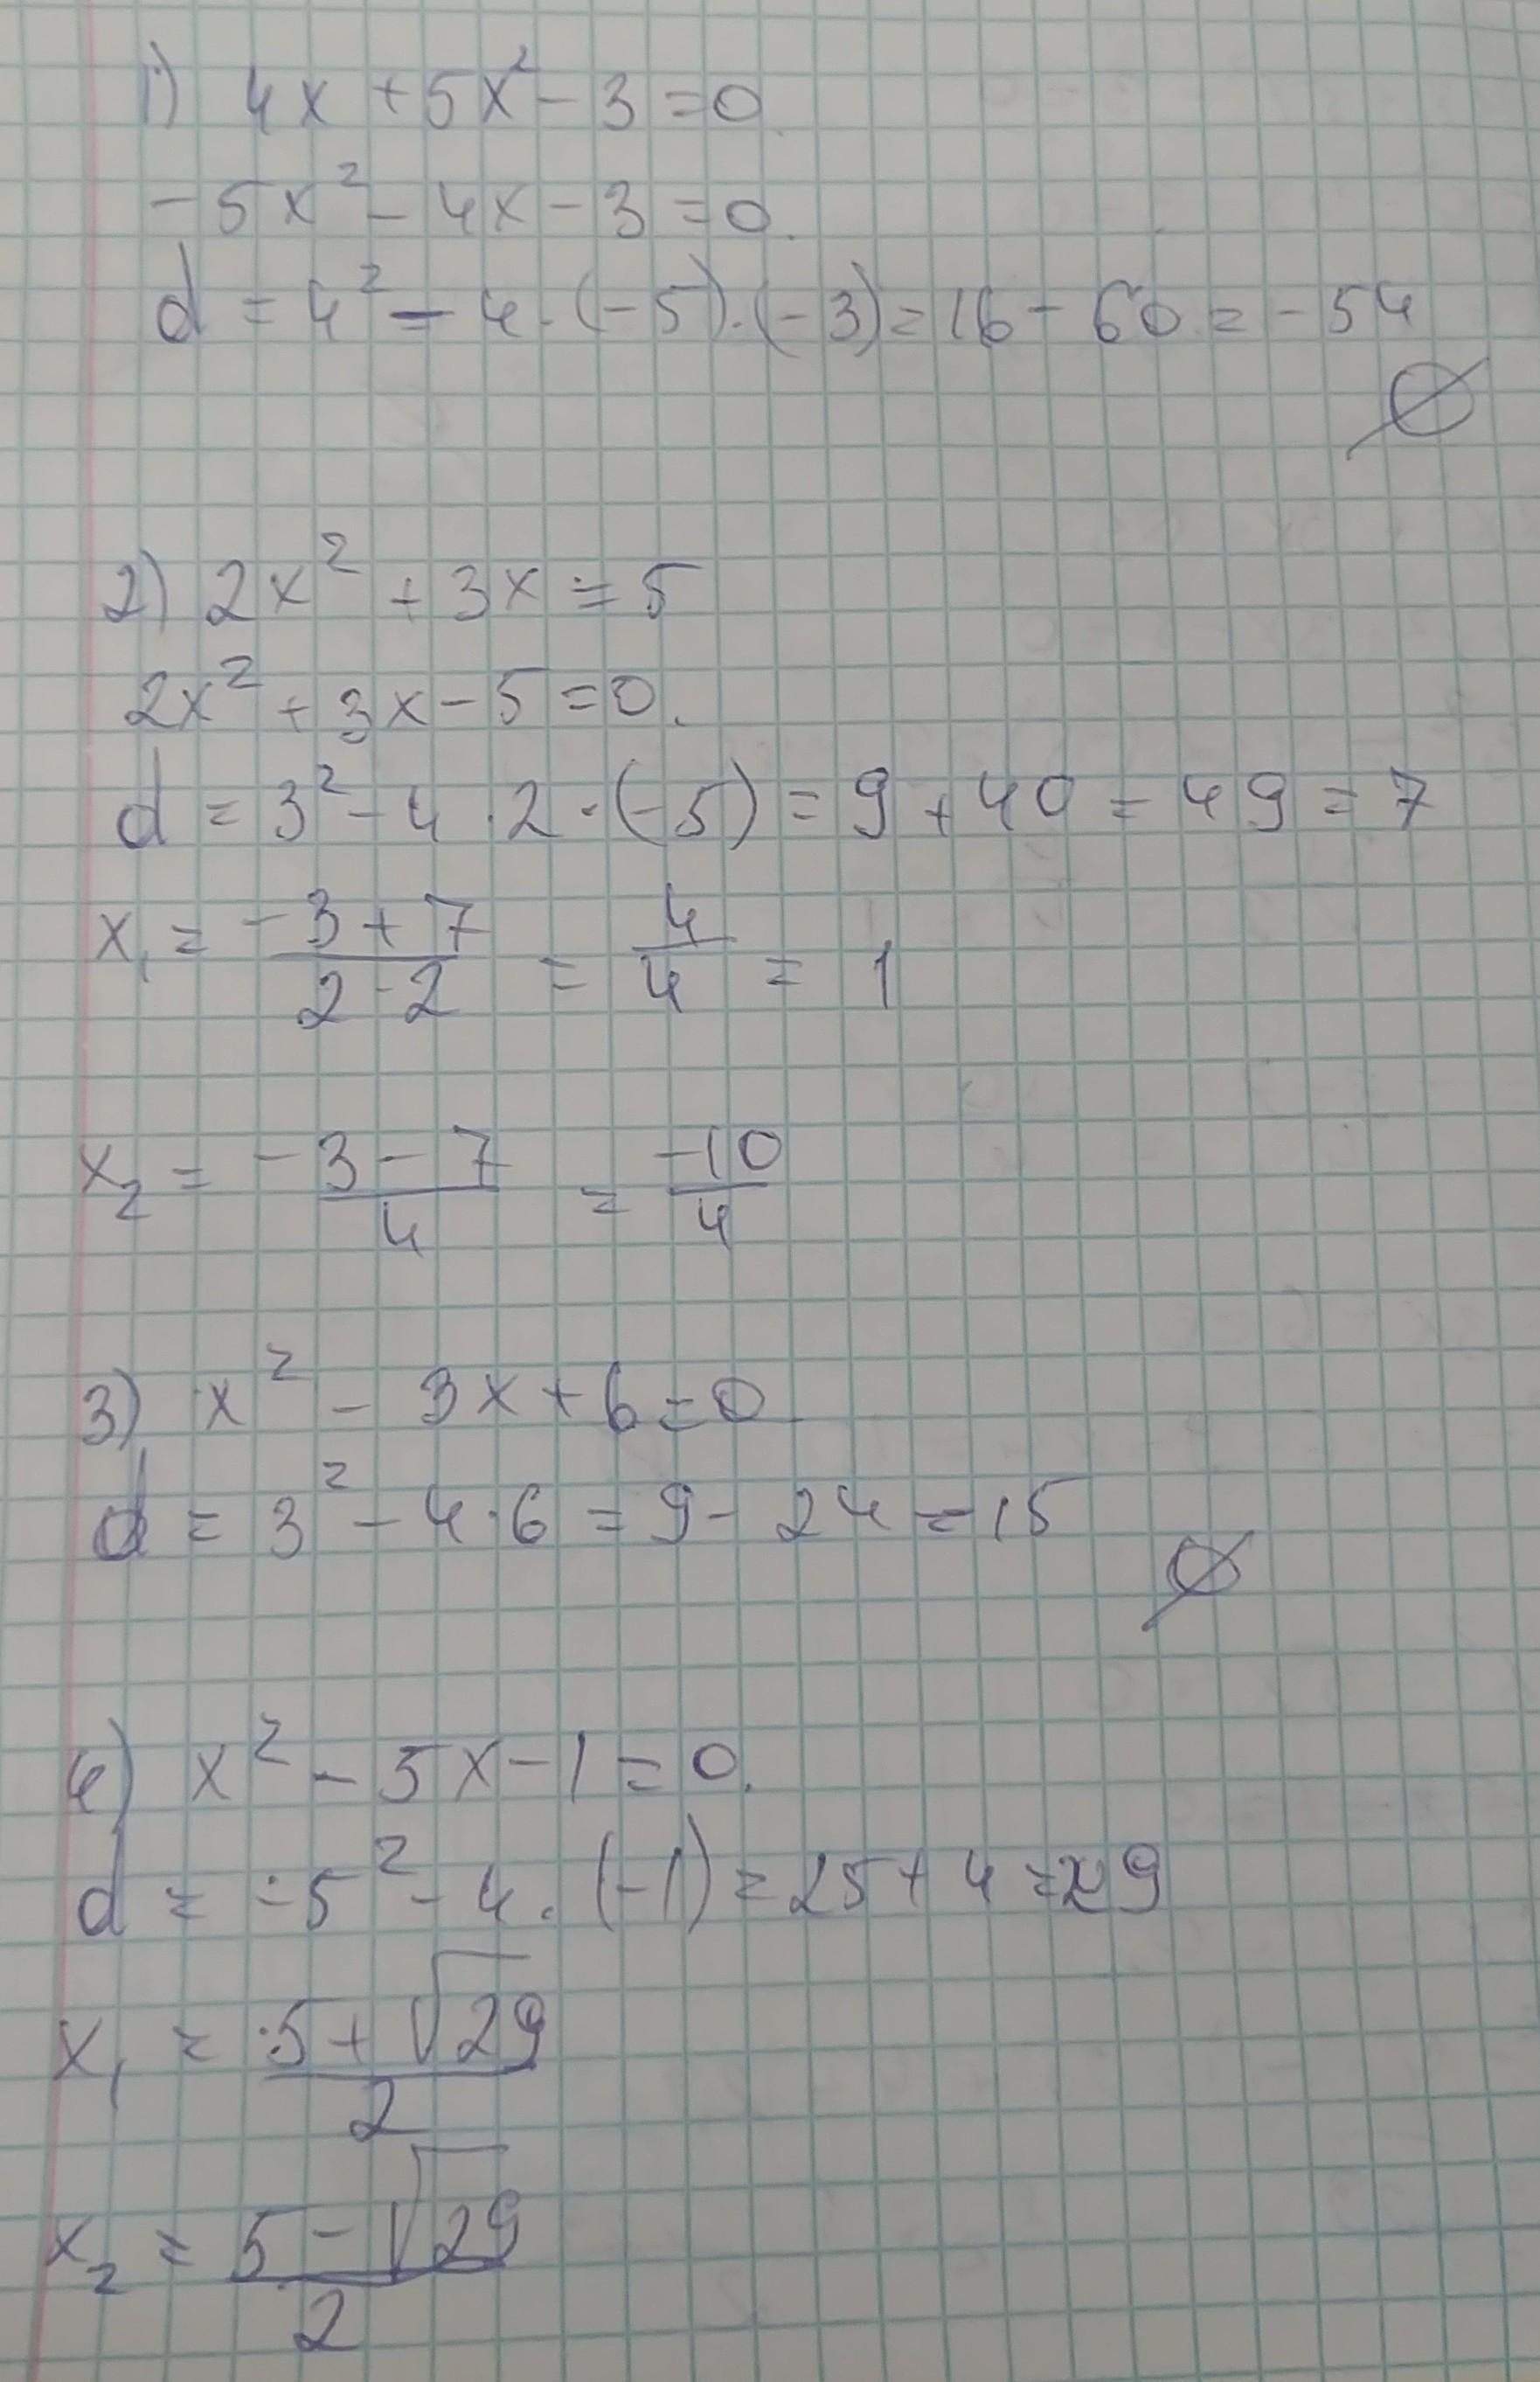 1) 4x + 5x² - 3 = 0.
- 5x² - 4x - 3 = 0.
d = 4² - 4 · (-5) · (-3) = 16 - 60 = -54
∅
2) 2x² + 3x = 5
2x² + 3x - 5 = 0.
d = 3² - 4 · 2 · (-5) = 9 + 40 = 49 = 7
x₁ = (-3 + 7)/(2 · 2) = 4/4 = 1
x₂ = (-3 - 7)/4 = -10/4
3) x² - 3x + 6 = 0
d = 3² - 4 · 6 = 9 - 24 = 15
∅
4) x² - 5x - 1 = 0.
d = -5² - 4 · (-1) = 25 + 4 = 29
x₁ = (5 + √29)/2
x₂ = (5 - √29)/2